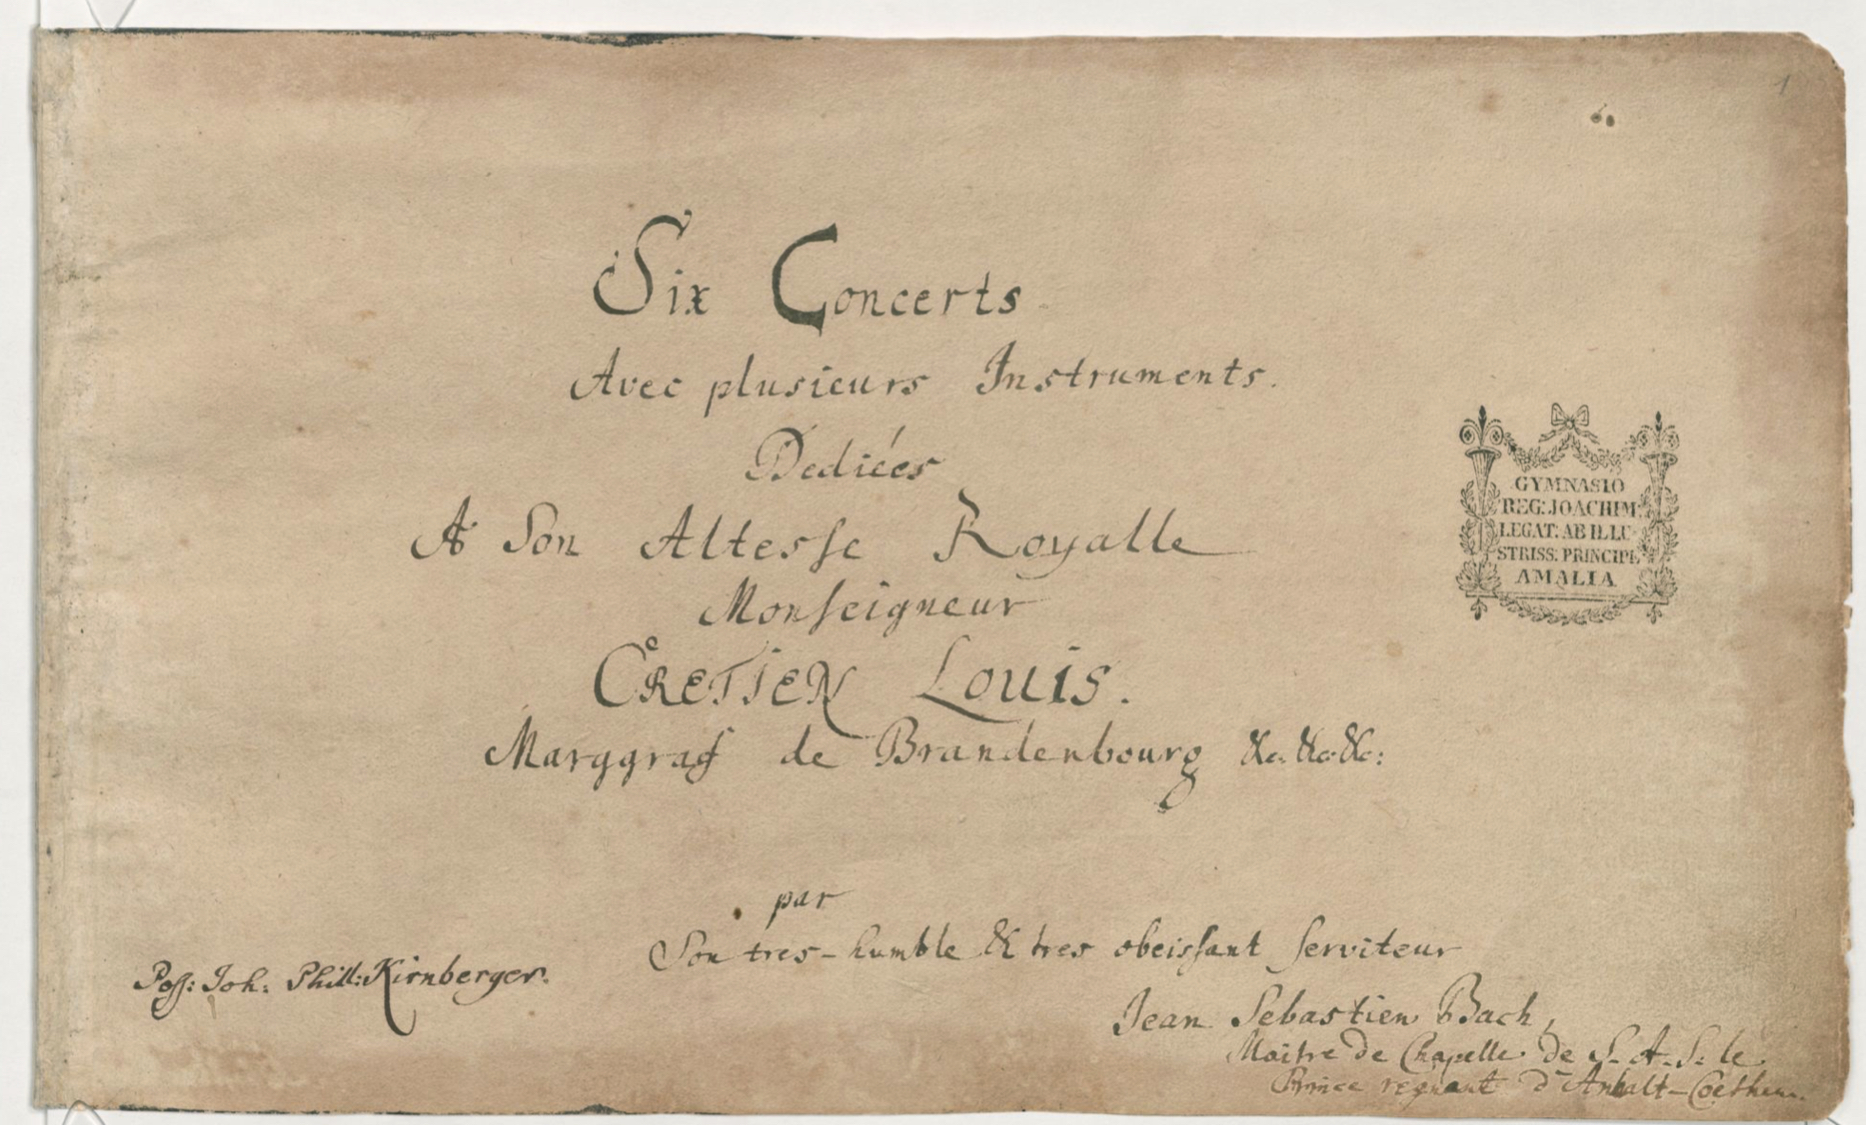 1
Six Concerts
Avec plusieurs Instruments.
Dediées
A Son Altesse Royalle
Monseigneur
CRETIEN LOUIS.
Marggraf de Brandenbourg &c. &c. &c:
par
Son tres-humble & tres obeissant serviteur
Jean Sebastien Bach,
Maitre de Chapelle de S. A. S: le
Prince regnant d'Anhalt-Coethen.
Poss: Joh: Phill: Kirnberger.
GYMNASIO
REG: JOACHIM:
LEGAT: AB ILLU
STRISS: PRINCIPE
AMALIA